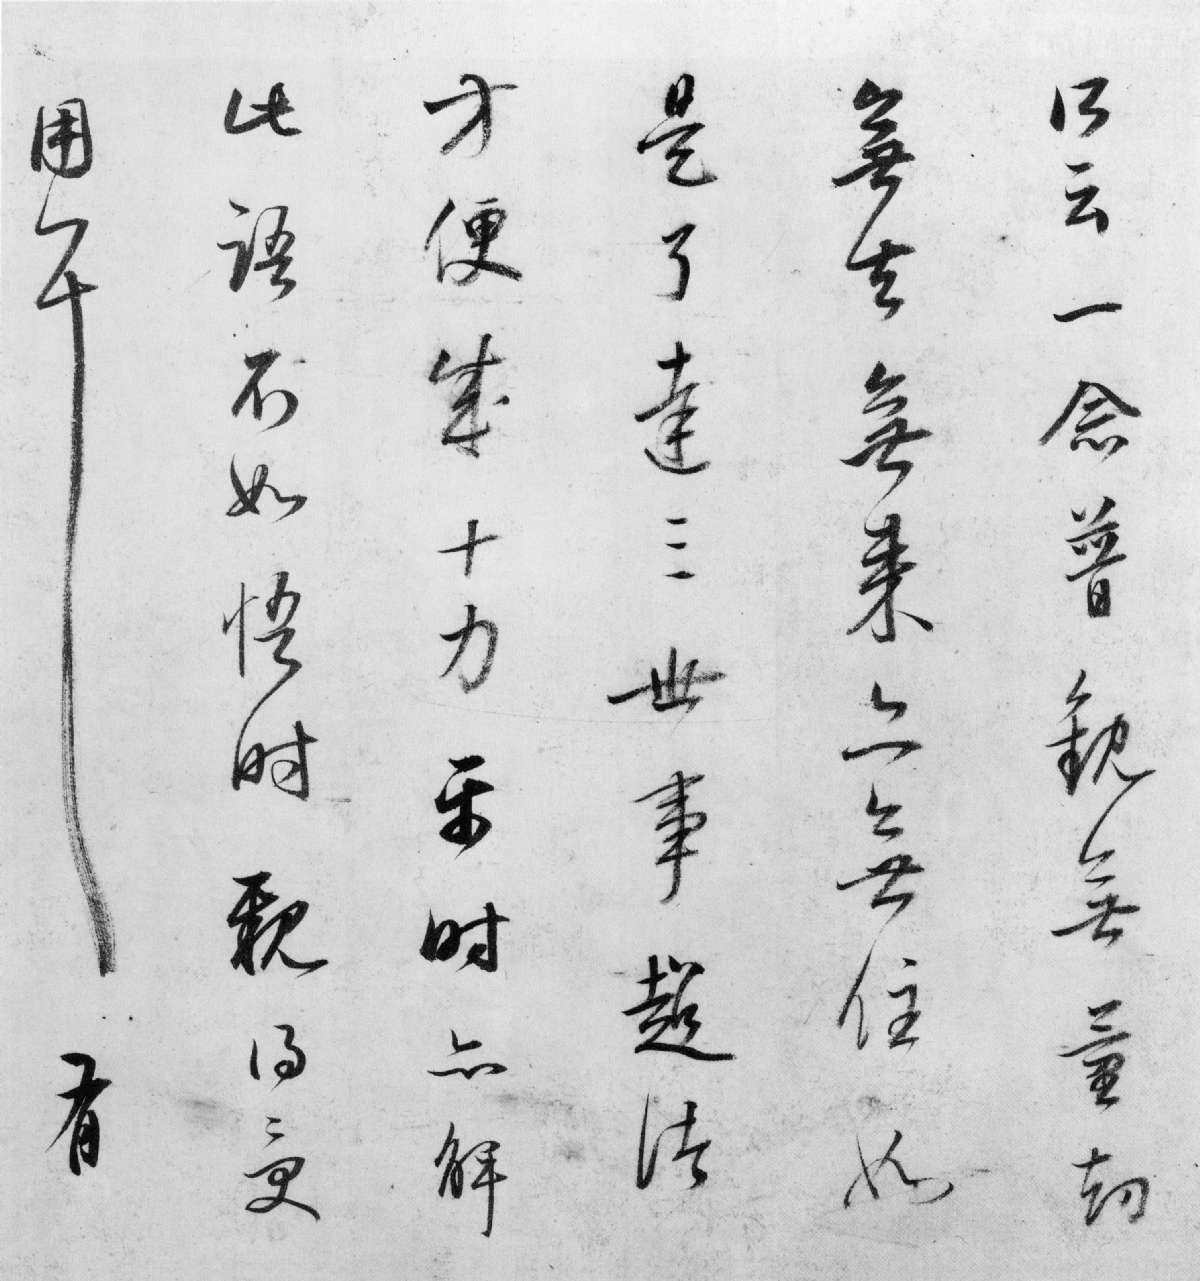 所云一念普觀無量劫
無去無來亦無住如
是了達三世事超諸
方便成十力平時亦解
此語不如悟時親得受
用耳 有